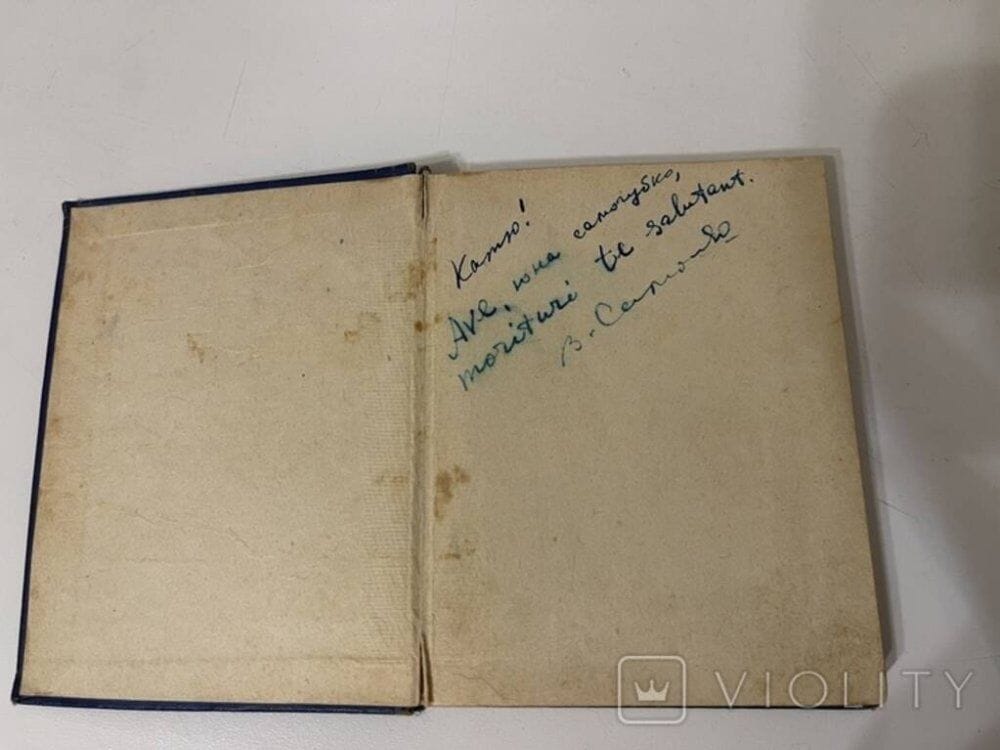 Катю!
Ave, юна самогубко,
morituri te salutant.
В. Самойло
VIOLITY